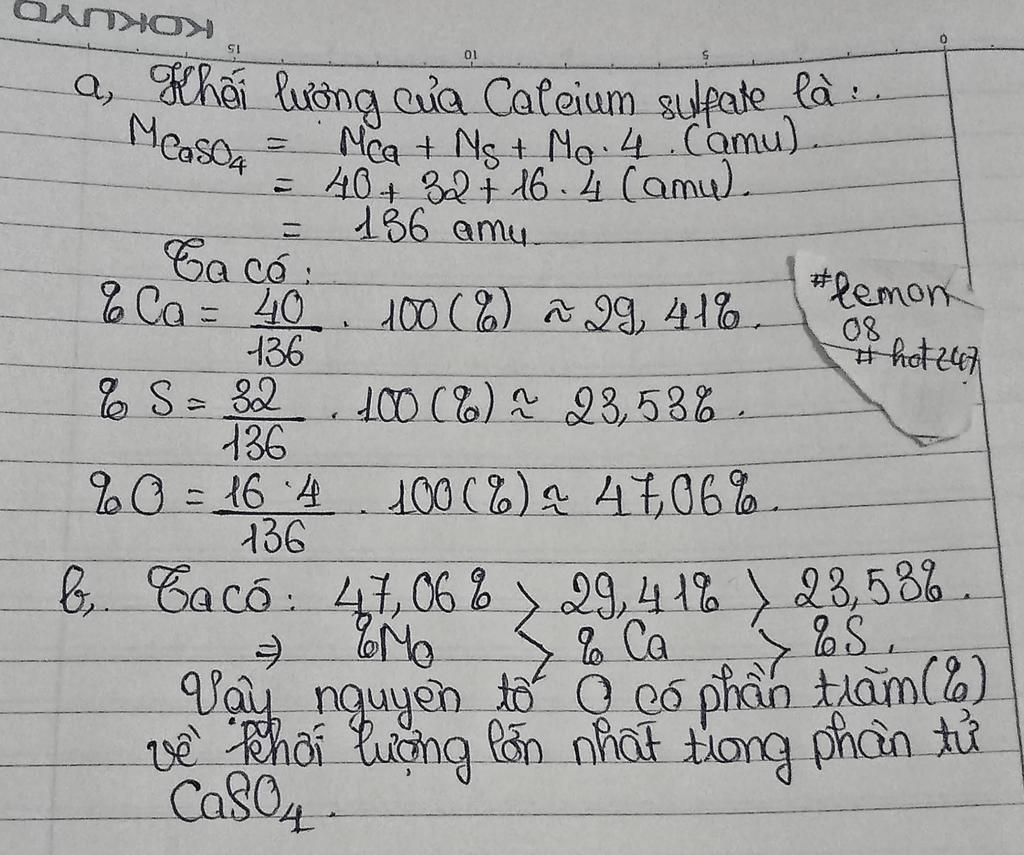 KOKUYO
15 10 5 0
a, Khối lương của Calcium sulfate là:.
MCaSO4 = MCa + MS + MO . 4 . (amu).
= 40 + 32 + 16 . 4 (amu).
= 136 amu
Ta có:
% Ca = 40/136 . 100 (%) ≈ 29,41%.
#lemon
08
# hot247
% S = 32/136 . 100 (%) ≈ 23,53%.
% O = 16 . 4/136 . 100 (%) ≈ 47,06%.
b,. Ta có: 47,06% > 29,41% > 23,53%.
⇒ %MO > % Ca > %S.
Vậy nguyên tố O có phần trăm (%)
về khối lượng lớn nhất trong phân tử
CaSO4.